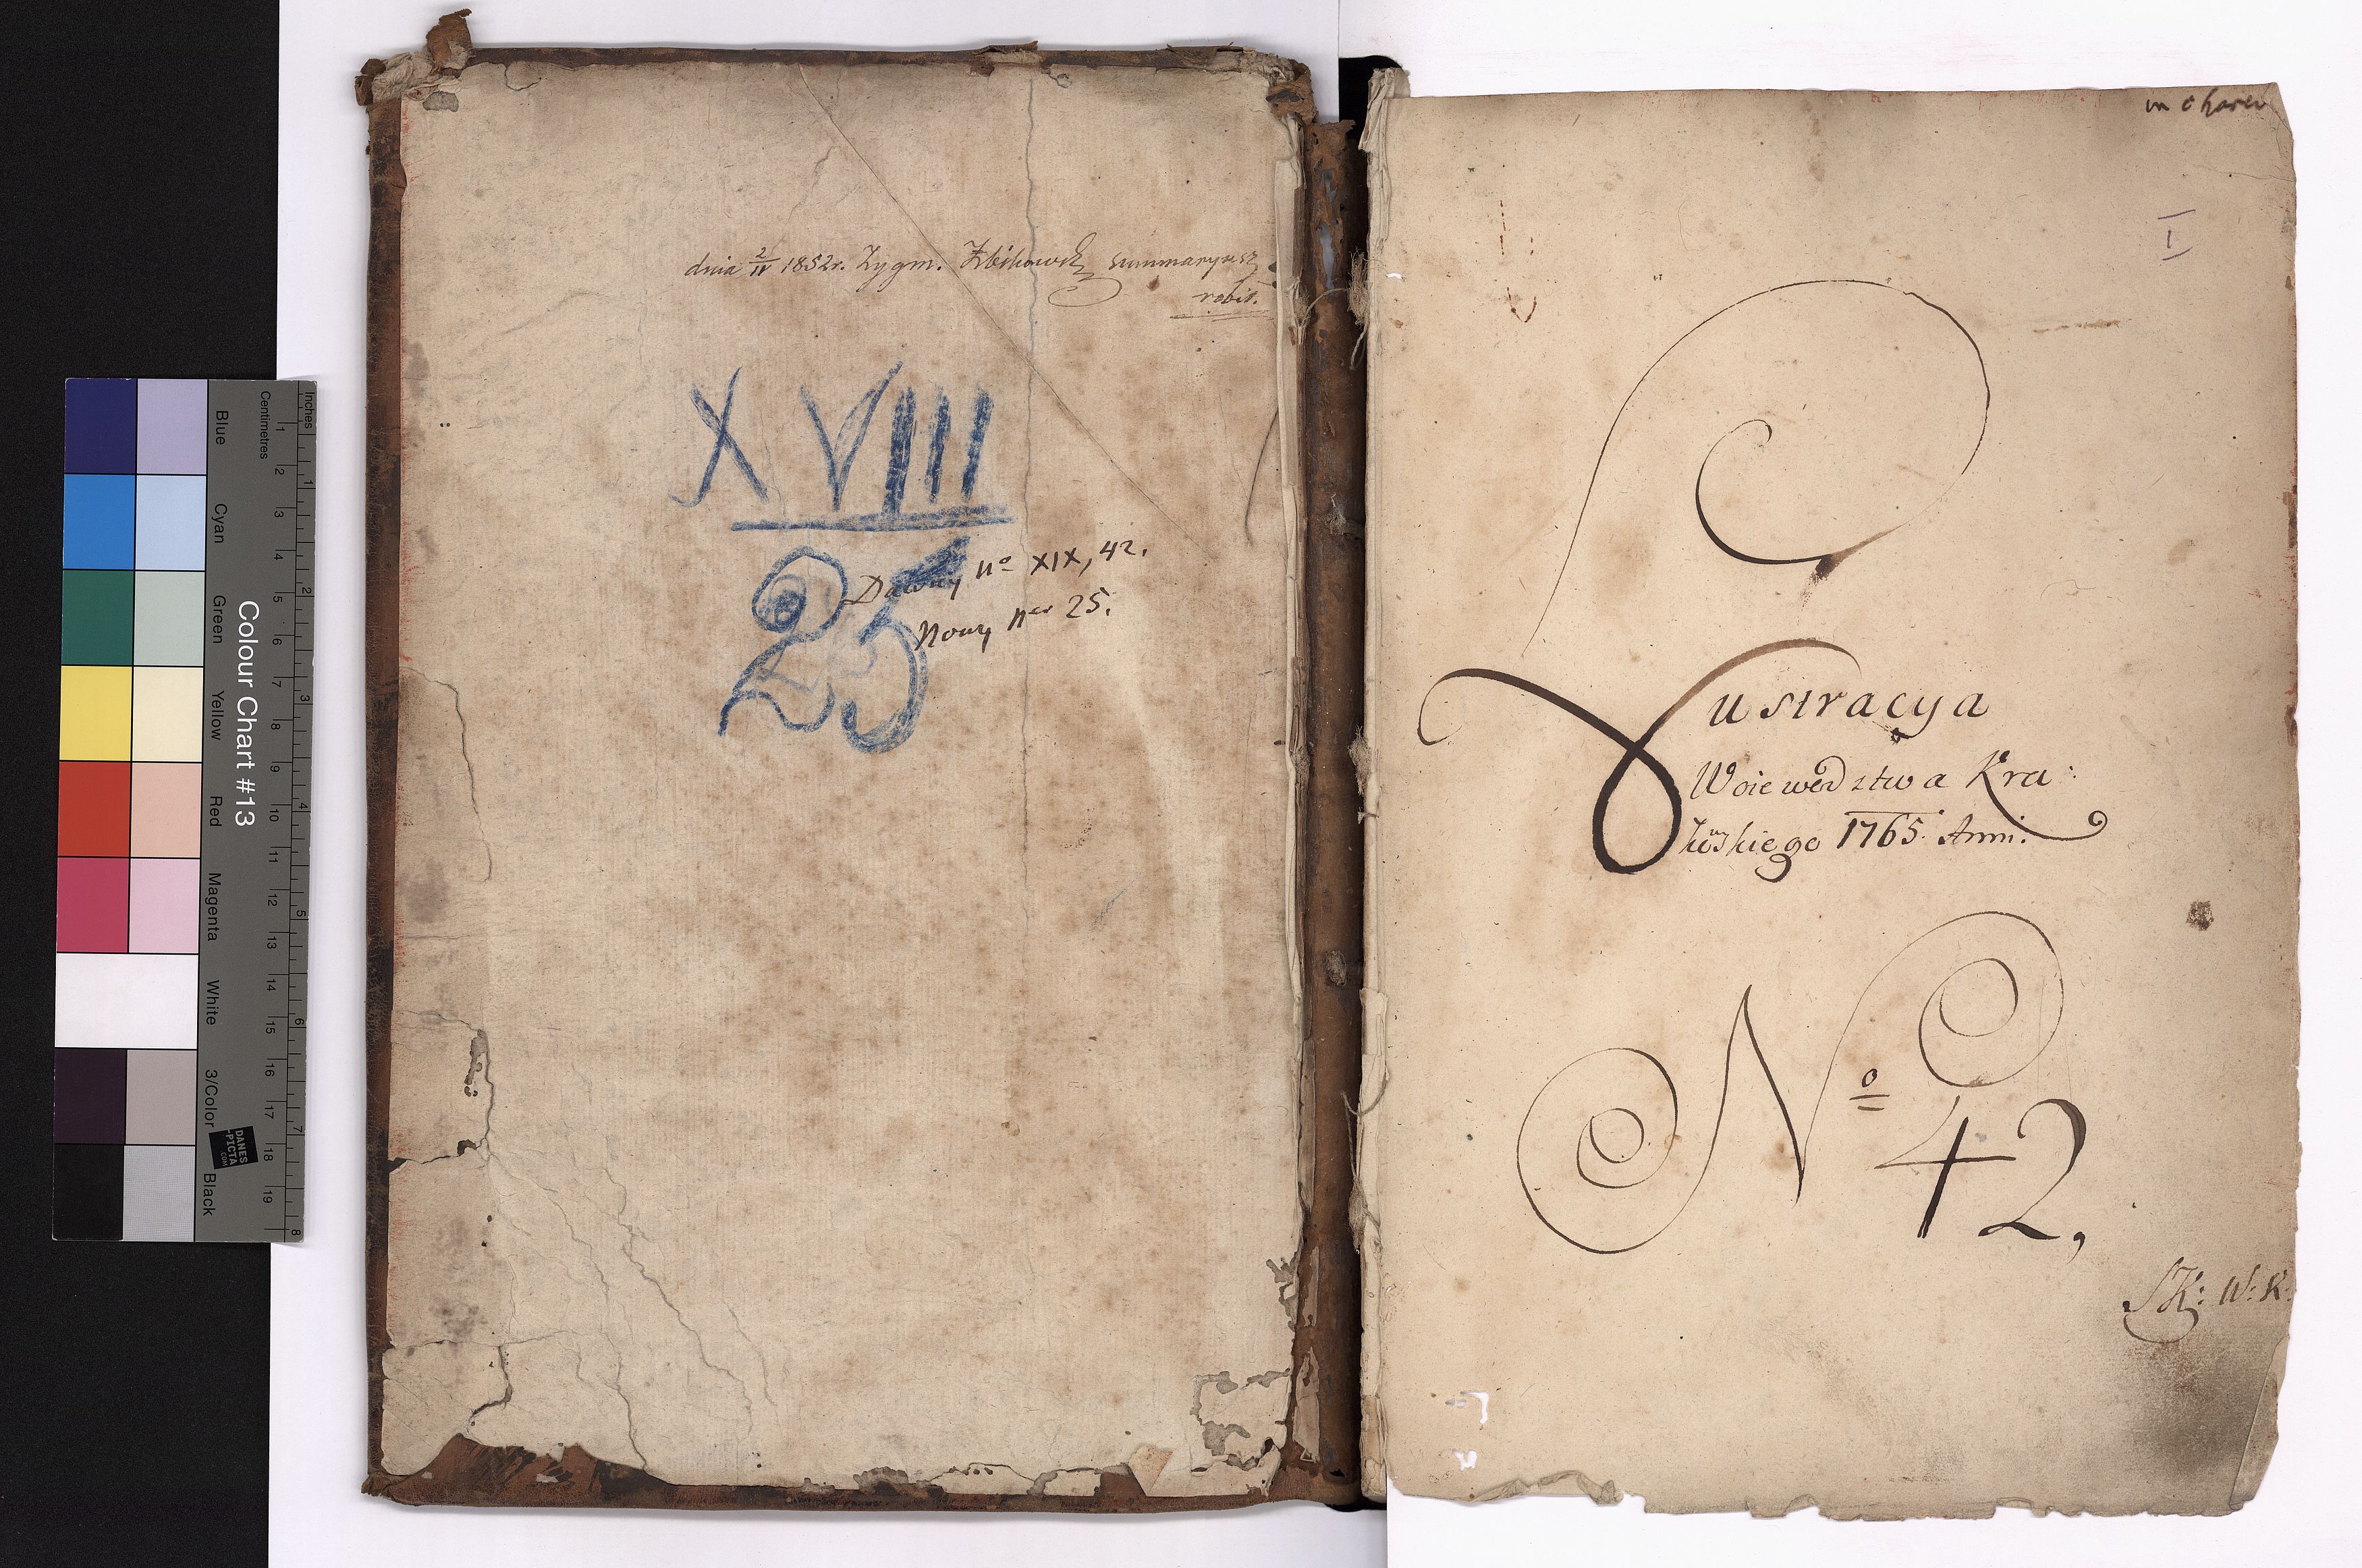 dnia 2/IV 1852r. Zygm. Zbikowski summaryusz
robił.
XVIII
25
Dawny no XIX, 42.
Nowy ner 25.
in
I
Lustracya
Woiewodztwa Kra
kowskiego 1765. Anni.
No 42,
SK: W: K:
Blue
Cyan
Green
Yellow
Red
Magenta
White
3/Color
Black
Colour Chart #13
Centimetres
1
2
3
4
5
6
7
8
9
10
11
12
13
14
15
16
17
18
19
Inches
1
2
3
4
5
6
7
8
DANES
-PICTA
.COM